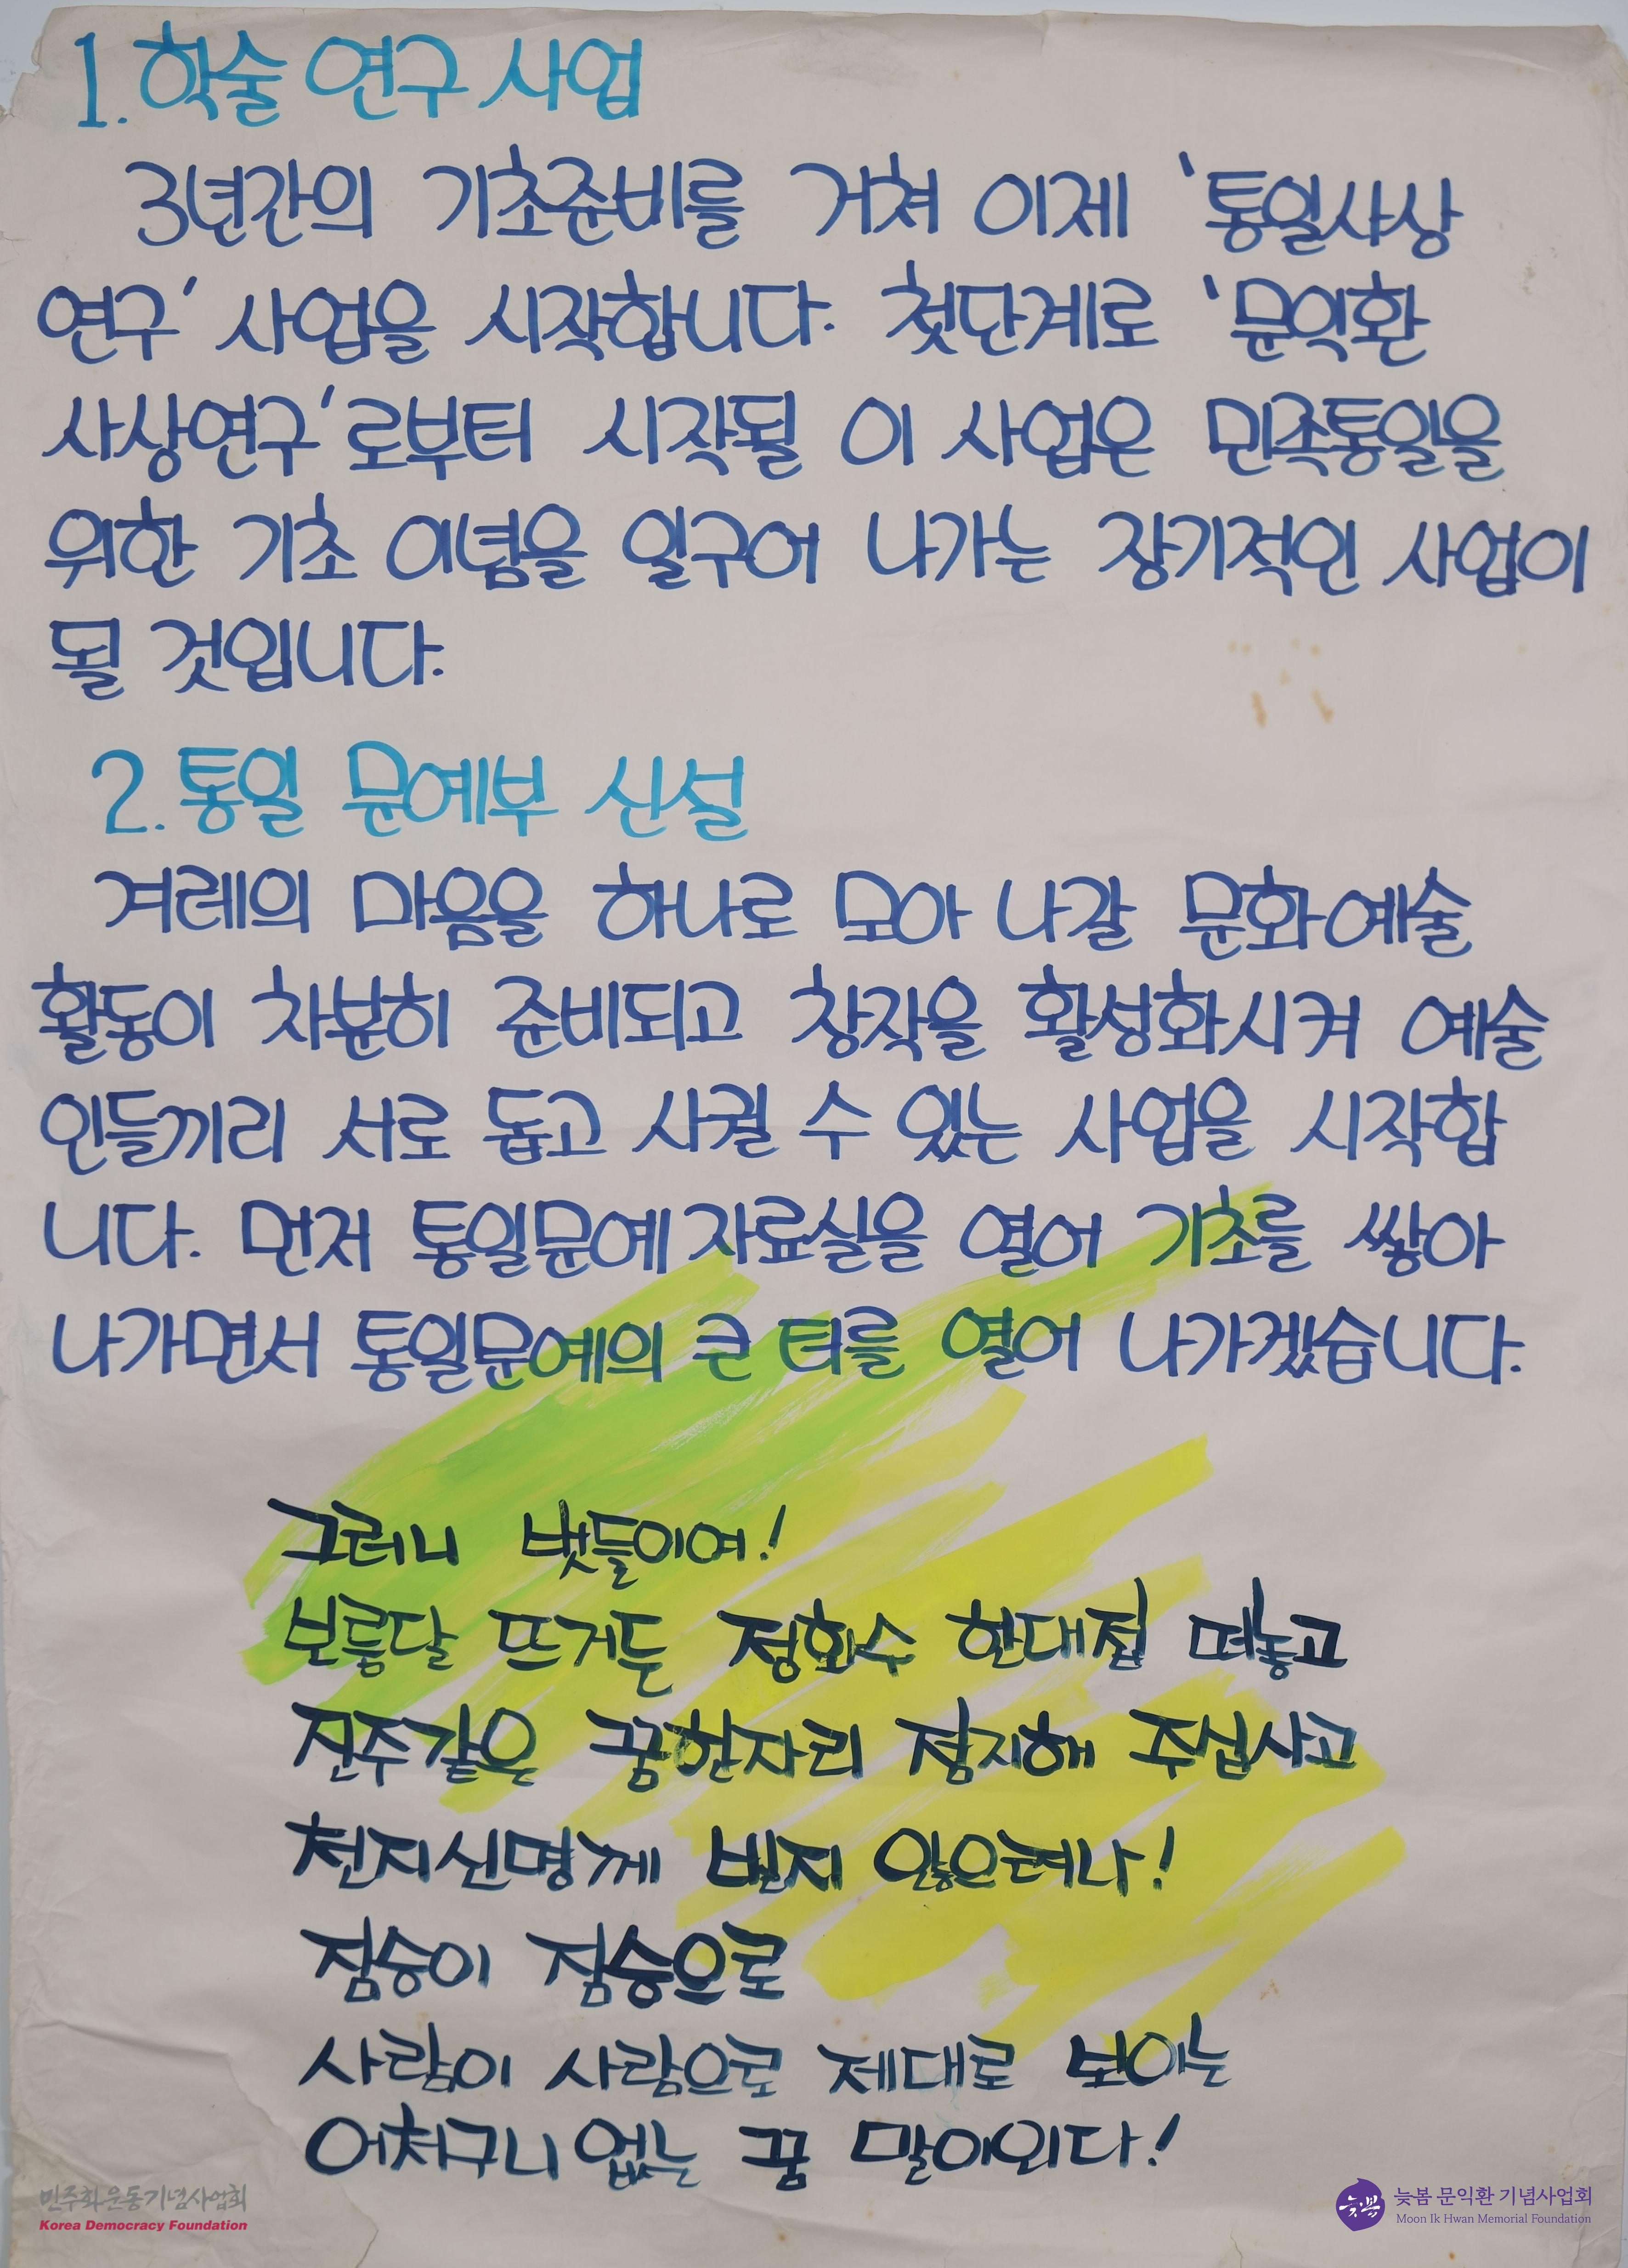 1. 학술 연구 사업
3년간의 기초준비를 거쳐 이제 '통일사상
연구' 사업을 시작합니다. 첫단계로 '문익환
사상연구'로부터 시작될 이 사업은 민족통일을
위한 기초 이념을 일구어 나가는 장기적인 사업이
될 것입니다.
2. 통일 문예부 신설
겨레의 마음을 하나로 모아 나갈 문화예술
활동이 차분히 준비되고 창작을 활성화시켜 예술
인들끼리 서로 돕고 사귈 수 있는 사업을 시작합
니다. 먼저 통일문예 자료실을 열어 기초를 쌓아
나가면서 통일문예의 큰 터를 열어 나가겠습니다.
그러니 벗들이여!
보름달 뜨거든 정화수 한대접 떠놓고
진주같은 꿈한자리 점지해 주십사고
천지신명께 빌지 않으려나!
짐승이 짐승으로
사람이 사람으로 제대로 보이는
어처구니 없는 꿈 말이외다!
민주화운동기념사업회
Korea Democracy Foundation
늦봄
늦봄 문익환 기념사업회
Moon Ik Hwan Memorial Foundation